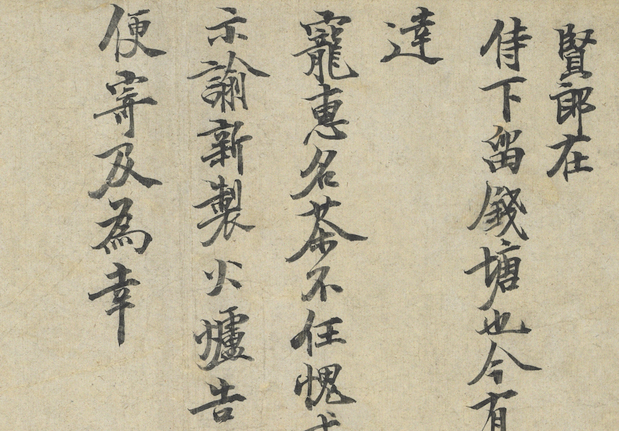 賢郎在
侍下留錢塘也今有
達
寵惠名茶不任愧
示諭新製火爐告
便寄及為幸